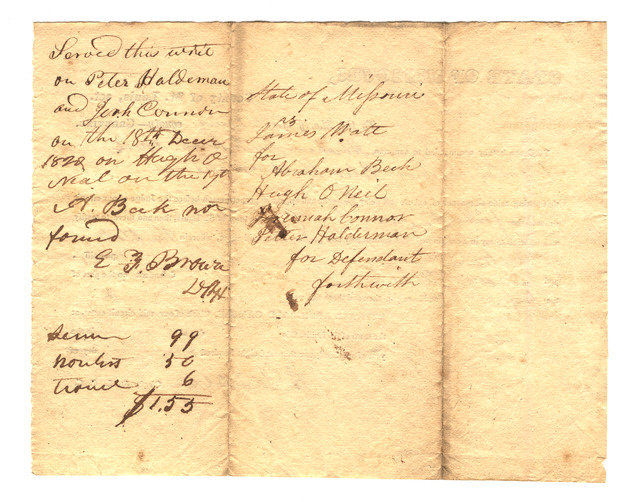 Served this writ
on Peter Haldeman
and Jerh Connor
on the 18th Decer
1820 on Hugh O
Neal on the 19t
A. Beck not
found
E. F. Brown
DSH
Serving 99
nonest 50
travel 6
$1.55
State of Missouri
vs
James Watt
for
Abraham Beck
Hugh O Neil
Jeremiah Connor
Peter Halderman
for Defendant
forthwith
STATE OF MISSOURI,